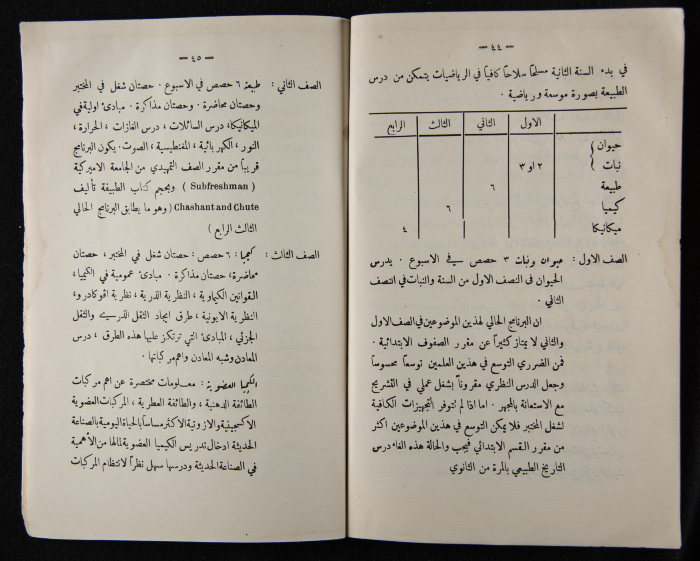 — ٤٤ —
في بدء السنة الثانية مسلحاً سلاحاً كافياً في الرياضيات يتمكن من درس
الطبيعة بصورة موسعة ورياضية .
الاول الثاني الثالث الرابع
حيوان
نبات ٢ او ٣
طبيعة ٦
كيميا ٦
ميكانيكا ٤
الصف الاول : حيوان ونبات ٣ حصص في الاسبوع . يدرس
الحيوان في النصف الاول من السنة والنبات في النصف
الثاني .
ان البرنامج الحالي لهذين الموضوعين في الصف الاول
والثاني لا يمتاز كثيراً عن مقرر الصفوف الابتدائية .
فمن الضروري التوسع في هذين العلمين توسعاً محسوساً
وجعل الدرس النظري مقروناً بشغل عملي في التشريح
مع الاستعانة بالمجهر . اما اذا لم تتوفر التجهيزات الكافية
لشغل المختبر فلا يمكن التوسع في هذين الموضوعين اكثر
من مقرر القسم الابتدائي فيجب والحالة هذه الغاء درس
التاريخ الطبيعي بالمرة من الثانوي
— ٤٥ —
الصف الثاني : طبيعة ٦ حصص في الاسبوع . حصتان شغل في المختبر
وحصتان محاضرة . وحصتان مذاكرة . مبادئ اولية في
الميكانيكا، درس السائلات ، درس الغازات ، الحرارة ،
النور ، الكهربائية ، المغنطيسية ، الصوت . يكون البرنامج
قريباً من مقرر الصف التمهيدي من الجامعة الاميركية
( Subfreshman ) وبحجم كتاب الطبيعة تأليف
Chashant and Chute ( وهو ما يطابق البرنامج الحالي
الثالث الرابع )
الصف الثالث : كيميا : ٦ حصص : حصتان شغل في المختبر ، حصتان
محاضرة، حصتان مذاكرة . مبادئ عمومية في الكيميا ،
القوانين الكيماوية ، النظرية الذرية ، نظرية اڤوكادرو ،
النظرية الايونية ، طرق ايجاد الثقل الذري والثقل
الجزئي ، المبادئ التي ترتكز عليها هذه الطرق ، درس
المعادن وشبه المعادن واهم مركباتها .
الكيميا العضوية : معلومات مختصرة عن اهم مركبات
الطائفة الدهنية ، والطائفة العطرية ، المركبات العضوية
الاكسجينية والازوتية الاكثر مساساً بالحياة اليومية بالصناعة
الحديثة ادخال تدريس الكيميا العضوية لما لها من الأهمية
في الصناعة الحديثة ودرسها سهل نظراً لانتظام المركبات